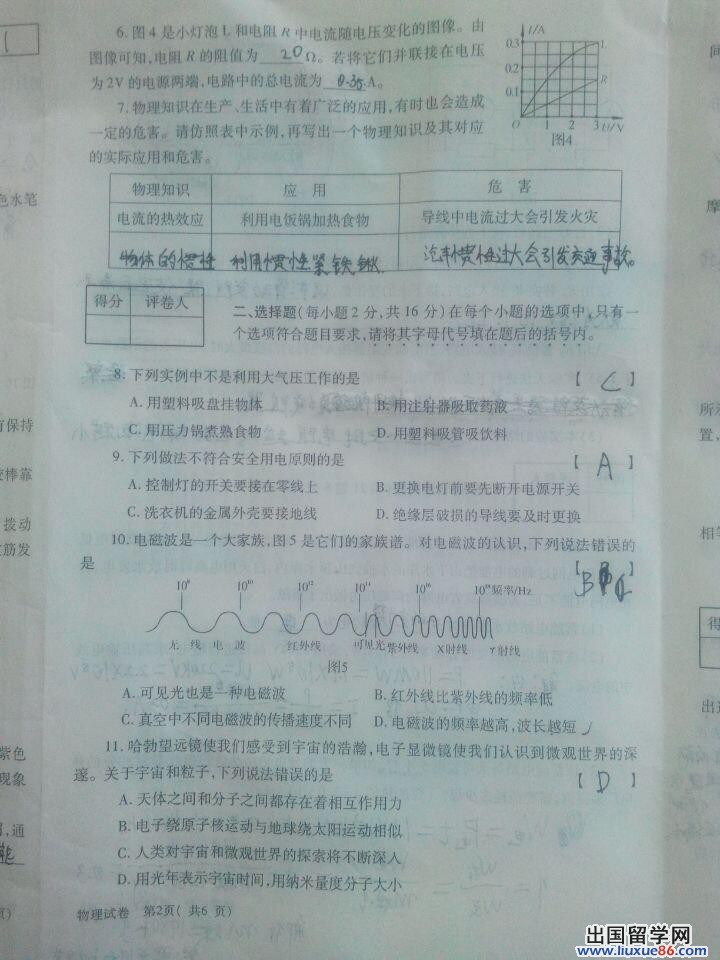 6. 图4是小灯泡L和电阻R中电流随电压变化的图像。由
图像可知,电阻R的阻值为 20 Ω。若将它们并联接在电压
为2V的电源两端,电路中的总电流为 0.35 A。
I/A
0.3
0.2
0.1
O
1
2
3
U/V
L
R
图4
7. 物理知识在生产、生活中有着广泛的应用,有时也会造成
一定的危害。请仿照表中示例,再写出一个物理知识及其对应
的实际应用和危害。
物理知识 应 用 危 害
电流的热效应 利用电饭锅加热食物 导线中电流过大会引发火灾
物体的惯性 利用惯性紧铁锹 汽车惯性过大会引发交通事故。
得分 评卷人
二、选择题(每小题2分,共16分)在每个小题的选项中,只有一
个选项符合题目要求,请将其字母代号填在题后的括号内。
8. 下列实例中不是利用大气压工作的是 【 C 】
A. 用塑料吸盘挂物体 B. 用注射器吸取药液
C. 用压力锅煮熟食物 D. 用塑料吸管吸饮料
9. 下列做法不符合安全用电原则的是 【 A 】
A. 控制灯的开关要接在零线上 B. 更换电灯前要先断开电源开关
C. 洗衣机的金属外壳要接地线 D. 绝缘层破损的导线要及时更换
10. 电磁波是一个大家族,图5是它们的家族谱。对电磁波的认识,下列说法错误的
是 【 】
10⁸ 10¹⁰ 10¹² 10¹⁴ 10¹⁶ 10¹⁸ 频率/Hz
无 线 电 波 红外线 可见光 紫外线 X射线 γ射线
图5
A. 可见光也是一种电磁波 B. 红外线比紫外线的频率低
C. 真空中不同电磁波的传播速度不同 D. 电磁波的频率越高,波长越短
11. 哈勃望远镜使我们感受到宇宙的浩瀚,电子显微镜使我们认识到微观世界的深
邃。关于宇宙和粒子,下列说法错误的是 【 D 】
A. 天体之间和分子之间都存在着相互作用力
B. 电子绕原子核运动与地球绕太阳运动相似
C. 人类对宇宙和微观世界的探索将不断深入
D. 用光年表示宇宙时间,用纳米量度分子大小
物理试卷 第2页( 共6 页)
色水笔
有保持
拨动
筋发
紫色
现象
通
能
页)
摩
置,
相等
得
出国留学网
www.liuxue86.com